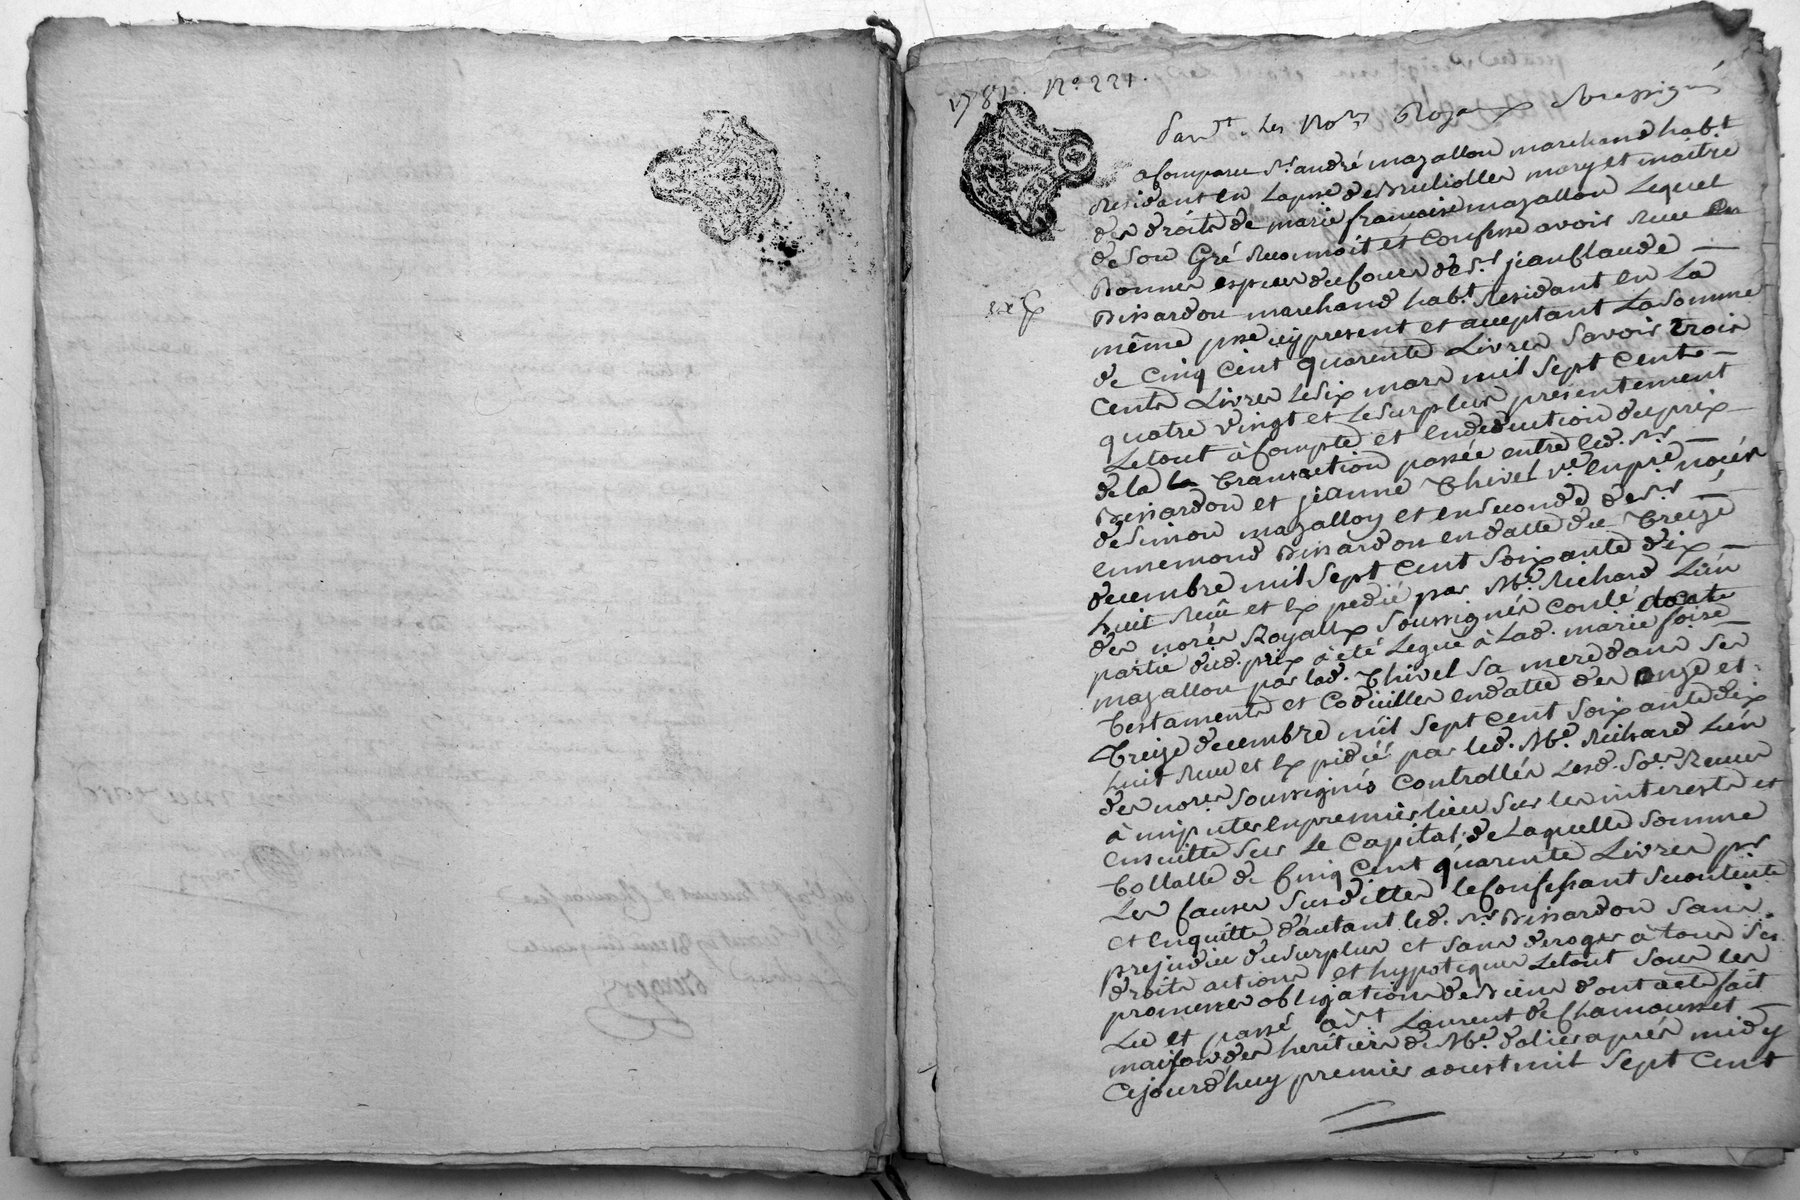 1781. N° 221.
Parvt. Les Nores Royaux soussignés
a Comparu Sr. andré mazallon marchand habt.
Residant en Laprse de Brulioller mary et maitre
des droits de marie francoise mazallon Lequel
de son Gré Reconnoit et Confesse avoir Receu en
Bonnes especes du Cours de Sr. jean Claude —
Bissardon marchand habt. Residant en La
même prse icy present et acceptant La somme
de Cinq Cent quarente Livres savoir trois
Cents Livres Le six mars mil sept Cent —
quatre vingt et Le surplus presentement
Le tout à Compte et en deduction du prix
de la Transaction passée entre led. Sr. —
Bissardon et jeanne Thivel ve. en pre. noces
de Simon mazallon et en seconde de Sr. —
ennemond Bissardon en datte du Treize
decembre mil sept Cent soixante dix —
huit Receu et Expedié par Me. Richard L'un
des nores Royaux soussignés Conlé
partie dud. prix à été Legué à Lad. marie foise
mazallon par lad. Thivel sa mere dans ses
Testaments et Codicilles en datte des onze et
Treize decembre mil sept Cent soixante dix
huit Receu et Expidié par led. Me. Richard L'un
des nores soussignés Controllés Lesd. Soes. Receues
à imputer en premier lieu sur les interests et
ensuitte sur Le Capital de Laquelle somme
Tottalle de Cinq Cent quarente Livres pr
Les Causes susdittes le Confessant se contente
et en quitte d'autant led. Sr. Bissardon sans
prejudice du surplus et sans deroger à tous ses
droits actions et hypoteques Le tout sous les
promesses obligations de Biens dont acte fait
Lu et passé à St. Laurent de Chamousset —
maison des heritiers de Me. dolier après midy
Cejourd'huy premier aoust mil sept Cent